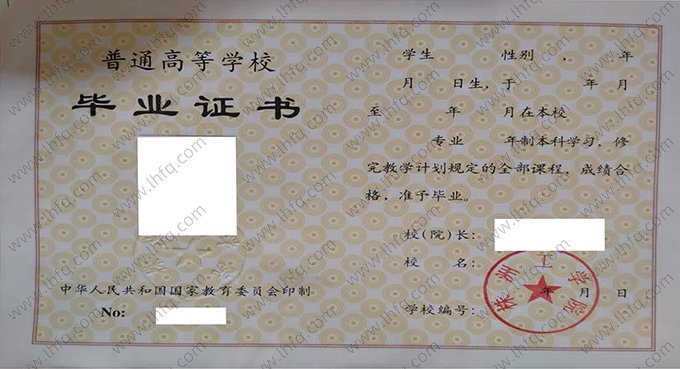 普通高等学校
毕业证书
中华人民共和国国家教育委员会印制
No:
学生 性别 , 年
月 日生，于 年 月
至 年 月在本校
专业 年制本科学习，修
完教学计划规定的全部课程，成绩合
格，准予毕业。
校(院)长:
校 名:
年 月 日
学校编号:
工学院
www.lhfq.com